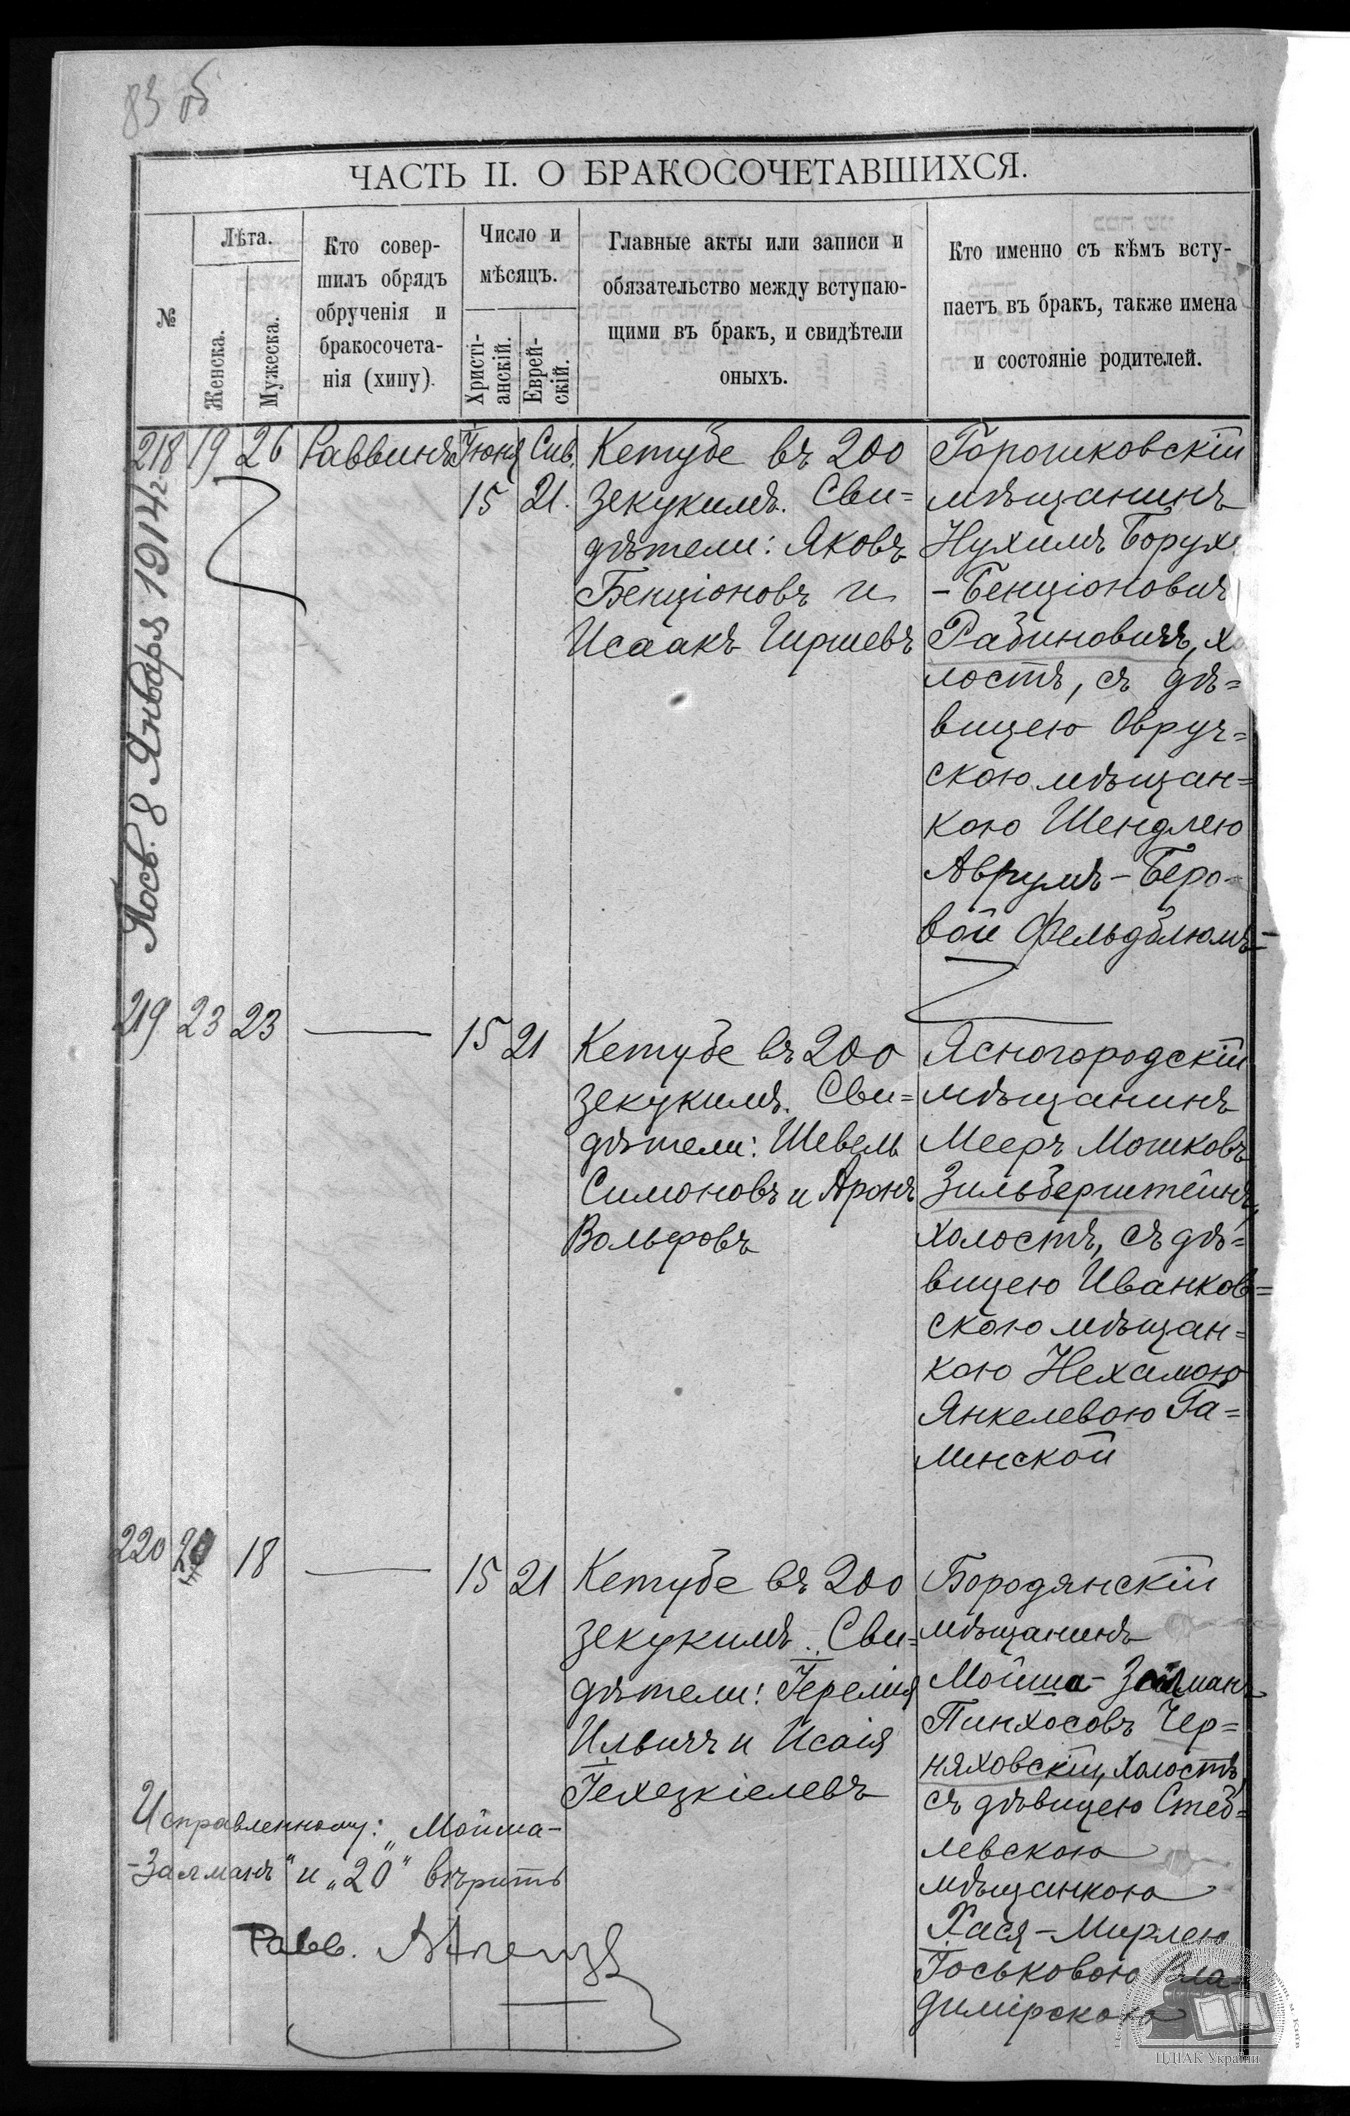 83 об
ЧАСТЬ II. О БРАКОСОЧЕТАВШИХСЯ.
№
Лѣта.
Женска.
Мужеска.
Кто совер-
шилъ обрядъ
обрученія и
бракосочета-
нія (хипу).
Число и
мѣсяцъ.
Христі-
анскій.
Еврей-
скій.
Главные акты или записи и
обязательство между вступаю-
щими въ бракъ, и свидѣтели
оныхъ.
Кто именно съ кѣмъ всту-
паетъ въ бракъ, также имена
и состояніе родителей.
218 19 26 Раввинъ Іюня Сив.
15 21.
Кетубе въ 200
зекукимъ. Сви=
дѣтели: Яковъ
Бенціоновъ и
Исаакъ Гиршевъ
Горошковскій
мѣщанинъ
Нухимъ Борух
-Бенціонович
Рабиновичъ, хо
лостъ, съ дѣ=
вицею Овруч=
скою мѣщан=
кою Шендлею
Аврумъ-Беро-
вой Фельдблюмъ-
Посв. 8 Января 1914 г.
219 23 23 — 15 21
Кетубе въ 200
зекукимъ. Сви=
дѣтели: Шевель
Симоновъ и Аронъ
Вольфовъ
Ясногородскій
мѣщанинъ
Мееръ Мошковъ
Зильберштейнъ,
холостъ, съ дѣ=
вицею Иванков=
скою мѣщан=
кою Нехамою
Янкелевою Га=
минской
220 20 18 — 15 21
Кетубе въ 200
зекукимъ. Сви=
дѣтели: Іеремія
Ильичъ и Исаія
Іехезкіелевъ
Бородянскій
мѣщанинъ
Мойша-Залманъ
Пинхосовъ Чер=
няховскій, холостъ,
съ дѣвицею Стеб=
левскою
мѣщанкою
Хася-Мирлею
Іоськовою Вла-
димірскою
Исправленному: „Мойша-
-Залманъ" и „20" вѣрить
Равв.
ЦДІАК України